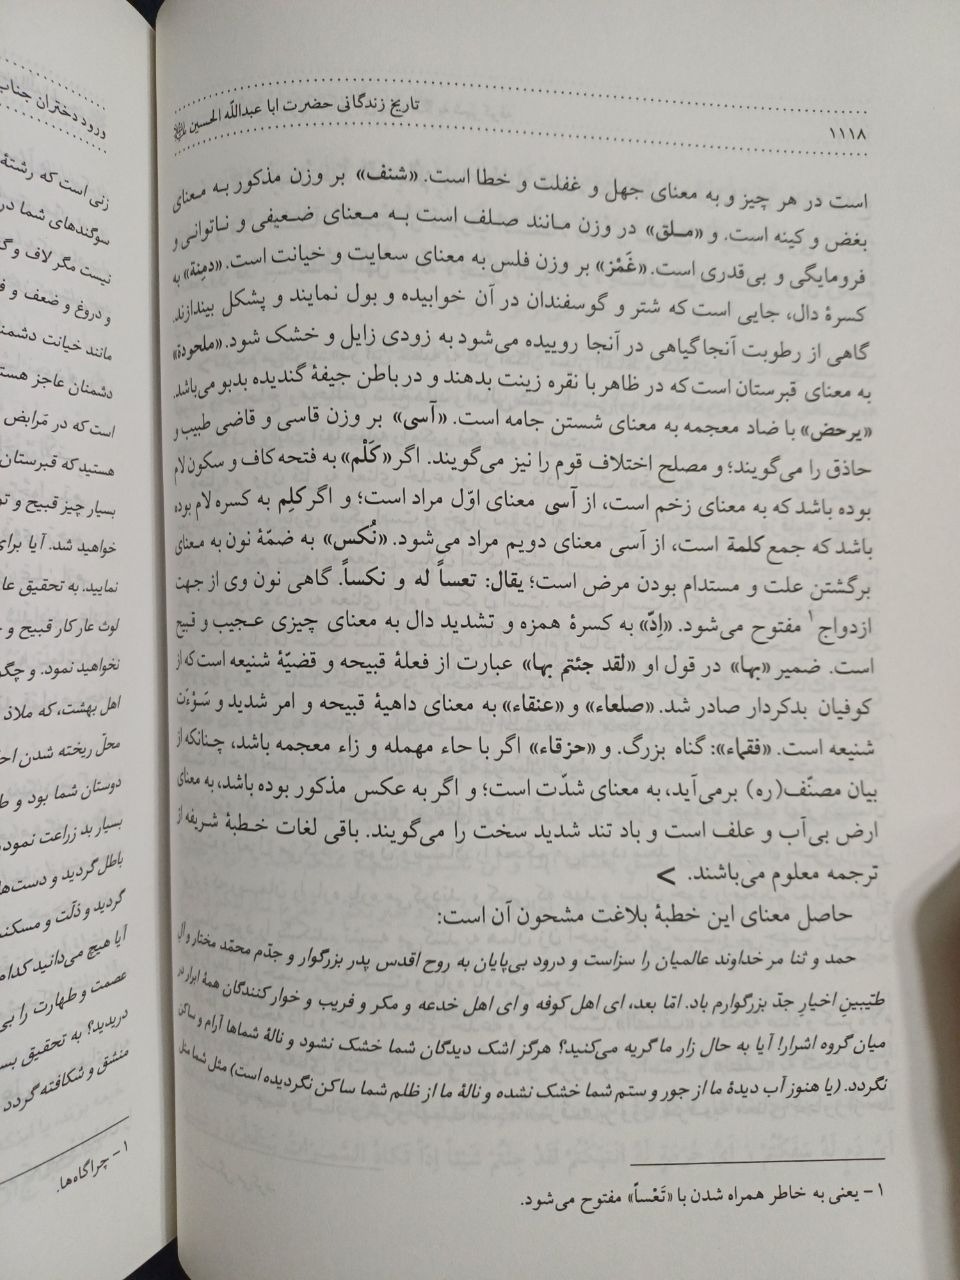 ۱۱۱۸
تاریخ زندگانی حضرت ابا عبدالله الحسین
است در هر چیز و به معنای جهل و غفلت و خطا است. «شنف» بر وزن مذکور به معنای
بغض و کینه است. و «ملق» در وزن مانند صلف است به معنای ضعیفی و ناتوانی و
فرومایگی و بی‌قدری است. «غَمْز» بر وزن فلس به معنای سعایت و خیانت است. «دمِنة» به
کسرۀ دال، جایی است که شتر و گوسفندان در آن خوابیده و بول نمایند و پشکل بیندازند.
گاهی از رطوبت آنجا گیاهی در آنجا روییده می‌شود به زودی زایل و خشک شود. «ملحودة»
به معنای قبرستان است که در ظاهر با نقره زینت بدهند و در باطن جیفۀ گندیده بدبو می‌باشد.
«یرحض» با ضاد معجمه به معنای شستن جامه است. «آسی» بر وزن قاسی و قاضی طبیب و
حاذق را می‌گویند؛ و مصلح اختلاف قوم را نیز می‌گویند. اگر «کَلْم» به فتحه کاف و سکون لام
بوده باشد که به معنای زخم است، از آسی معنای اوّل مراد است؛ و اگر کلِم به کسره لام بوده
باشد که جمع کلمة است، از آسی معنای دویم مراد می‌شود. «نُکس» به ضمّۀ نون به معنای
برگشتن علت و مستدام بودن مرض است؛ یقال: تعساً له و نکساً. گاهی نون وی از جهت
ازدواج۱ مفتوح می‌شود. «اِدّ» به کسرۀ همزه و تشدید دال به معنای چیزی عجیب و قبیح
است. ضمیر «بها» در قول او «لقد جئتم بها» عبارت از فعلۀ قبیحه و قضیّۀ شنیعه است که از
کوفیان بدکردار صادر شد. «صلعاء» و «عنقاء» به معنای داهیۀ قبیحه و امر شدید و سَوْءَت
شنیعه است. «فقماء»: گناه بزرگ. و «حزقاء» اگر با حاء مهمله و زاء معجمه باشد، چنانکه از
بیان مصنّف(ره) برمی‌آید، به معنای شدّت است؛ و اگر به عکس مذکور بوده باشد، به معنای
ارض بی‌آب و علف است و باد تند شدید سخت را می‌گویند. باقی لغات خطبۀ شریفه از
ترجمه معلوم می‌باشند. >
حاصل معنای این خطبۀ بلاغت مشحون آن است:
حمد و ثنا مر خداوند عالمیان را سزاست و درود بی‌پایان به روح اقدس پدر بزرگوار و جدّم محمّد مختار و آل
طیّبینِ اخیارِ جدّ بزرگوارم باد. امّا بعد، ای اهل کوفه و ای اهل خدعه و مکر و فریب و خوار کنندگان همۀ ابرار در
میان گروه اشرار! آیا به حال زار ما گریه می‌کنید؟ هرگز اشک دیدگان شما خشک نشود و نالۀ شماها آرام و ساکن
نگردد. (یا هنوز آب دیدۀ ما از جور و ستم شما خشک نشده و نالۀ ما از ظلم شما ساکن نگردیده است) مثل شما مثل
۱ – یعنی به خاطر همراه شدن با «تَعْساً» مفتوح می‌شود.
ورود دختران جناب
زنی است که رشتۀ
سوگندهای شما در
نیست مگر لاف و
و دروغ و ضعف و
مانند خیانت دشمنا
دشمنان عاجز هست
است که در مَرابض
هستید که قبرستان
بسیار چیز قبیح و
خواهید شد. آیا برای
نمایید. به تحقیق
لوث عار کار قبیح و
نخواهید نمود. و
اهل بهشت، که ملاذ
محلّ ریخته شدن
دوستان شما بود و
بسیار بد زراعت نمود
باطل گردید و دست‌ها
گردید و ذلّت و
آیا هیچ می‌دانید کدام
عصمت و طهارت را
دریدید؟ به تحقیق
منشق و شکافته گردد
۱ – چراگاه‌ها.